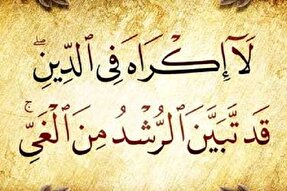 لَآ إِكْرَاهَ فِى ٱلدِّينِ ۖ
قَد تَّبَيَّنَ ٱلرُّشْدُ مِنَ ٱلْغَىِّ ۚ